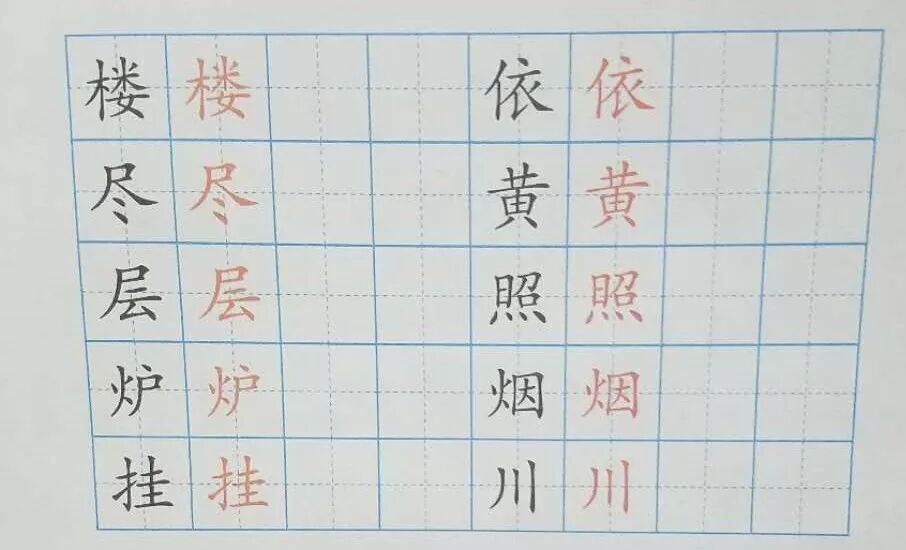 楼 楼 依 依
尽 尽 黄 黄
层 层 照 照
炉 炉 烟 烟
挂 挂 川 川